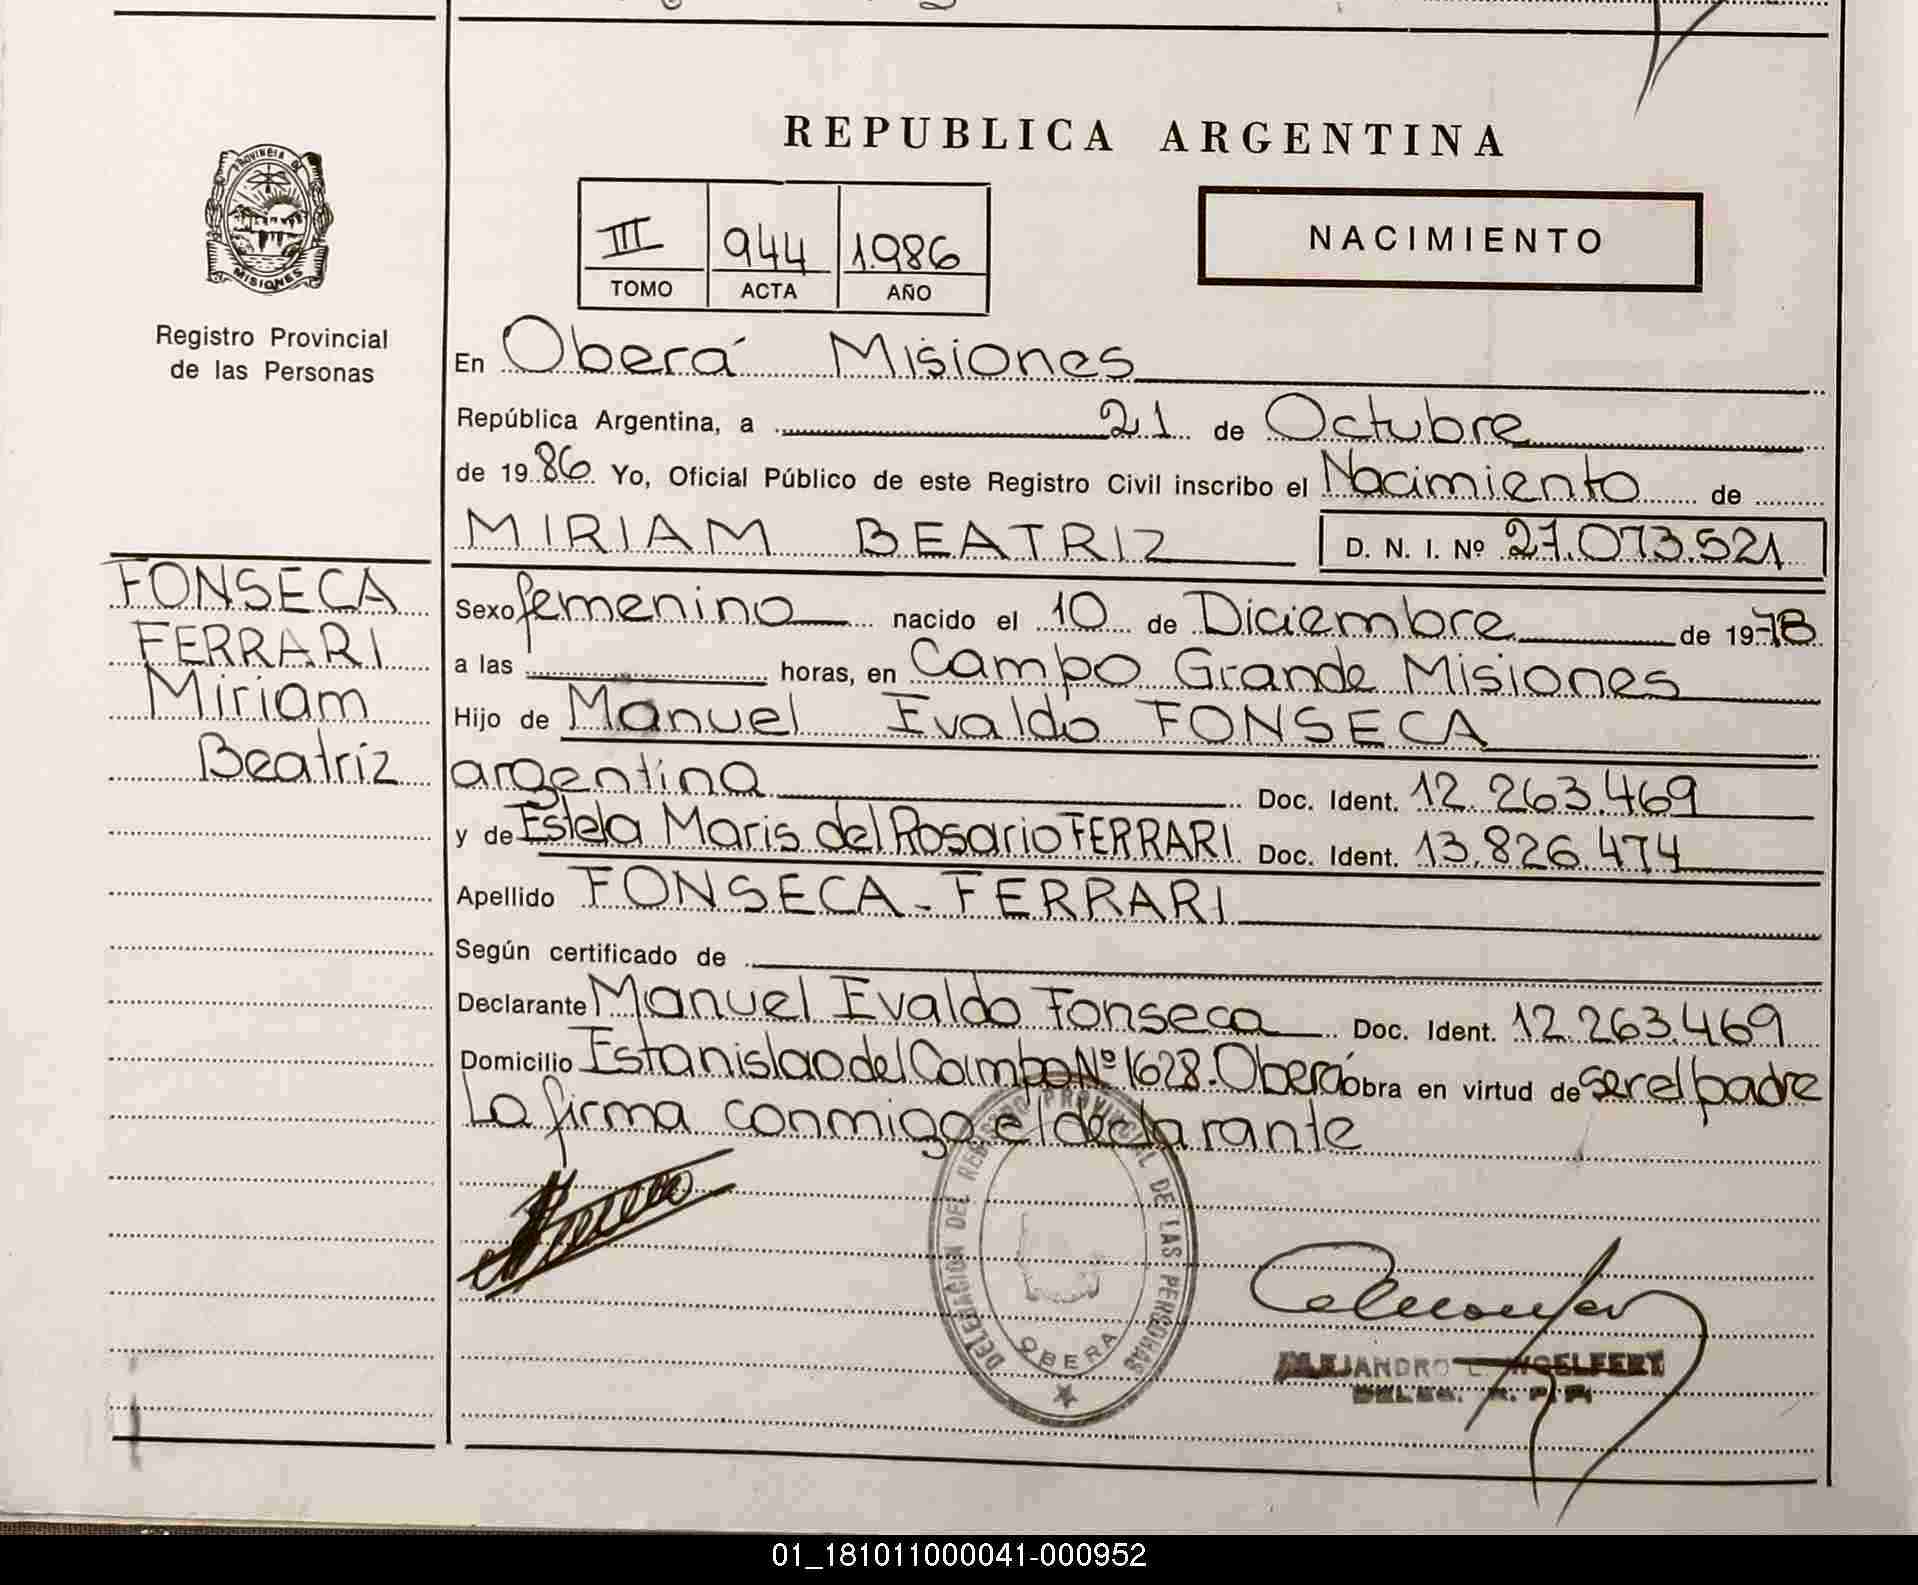 REPUBLICA ARGENTINA
PROVINCIA DE
MISIONES
Registro Provincial
de las Personas
III 944 1.986
TOMO ACTA AÑO
NACIMIENTO
En Oberá Misiones
República Argentina, a 21 de Octubre
de 19 86 Yo, Oficial Público de este Registro Civil inscribo el Nacimiento de
MIRIAM BEATRIZ D. N. I. Nº 27.073.521
FONSECA
FERRARI
Miriam
Beatriz
Sexo femenino nacido el 10 de Diciembre de 1978
a las horas, en Campo Grande Misiones
Hijo de Manuel Evaldo FONSECA
argentina Doc. Ident. 12.263.469
y de Estela Maris del Rosario FERRARI Doc. Ident. 13.826.474
Apellido FONSECA-FERRARI
Según certificado de
Declarante Manuel Evaldo Fonseca Doc. Ident. 12.263.469
Domicilio Estanislao del Campo Nº 1628. Oberá obra en virtud de ser el padre
La firma conmigo el declarante
DELEGACION DEL REGISTRO PROVINCIAL DE LAS PERSONAS
OBERA
ALEJANDRO L. WOELFERT
DELEG. R. P. P.
01_181011000041-000952